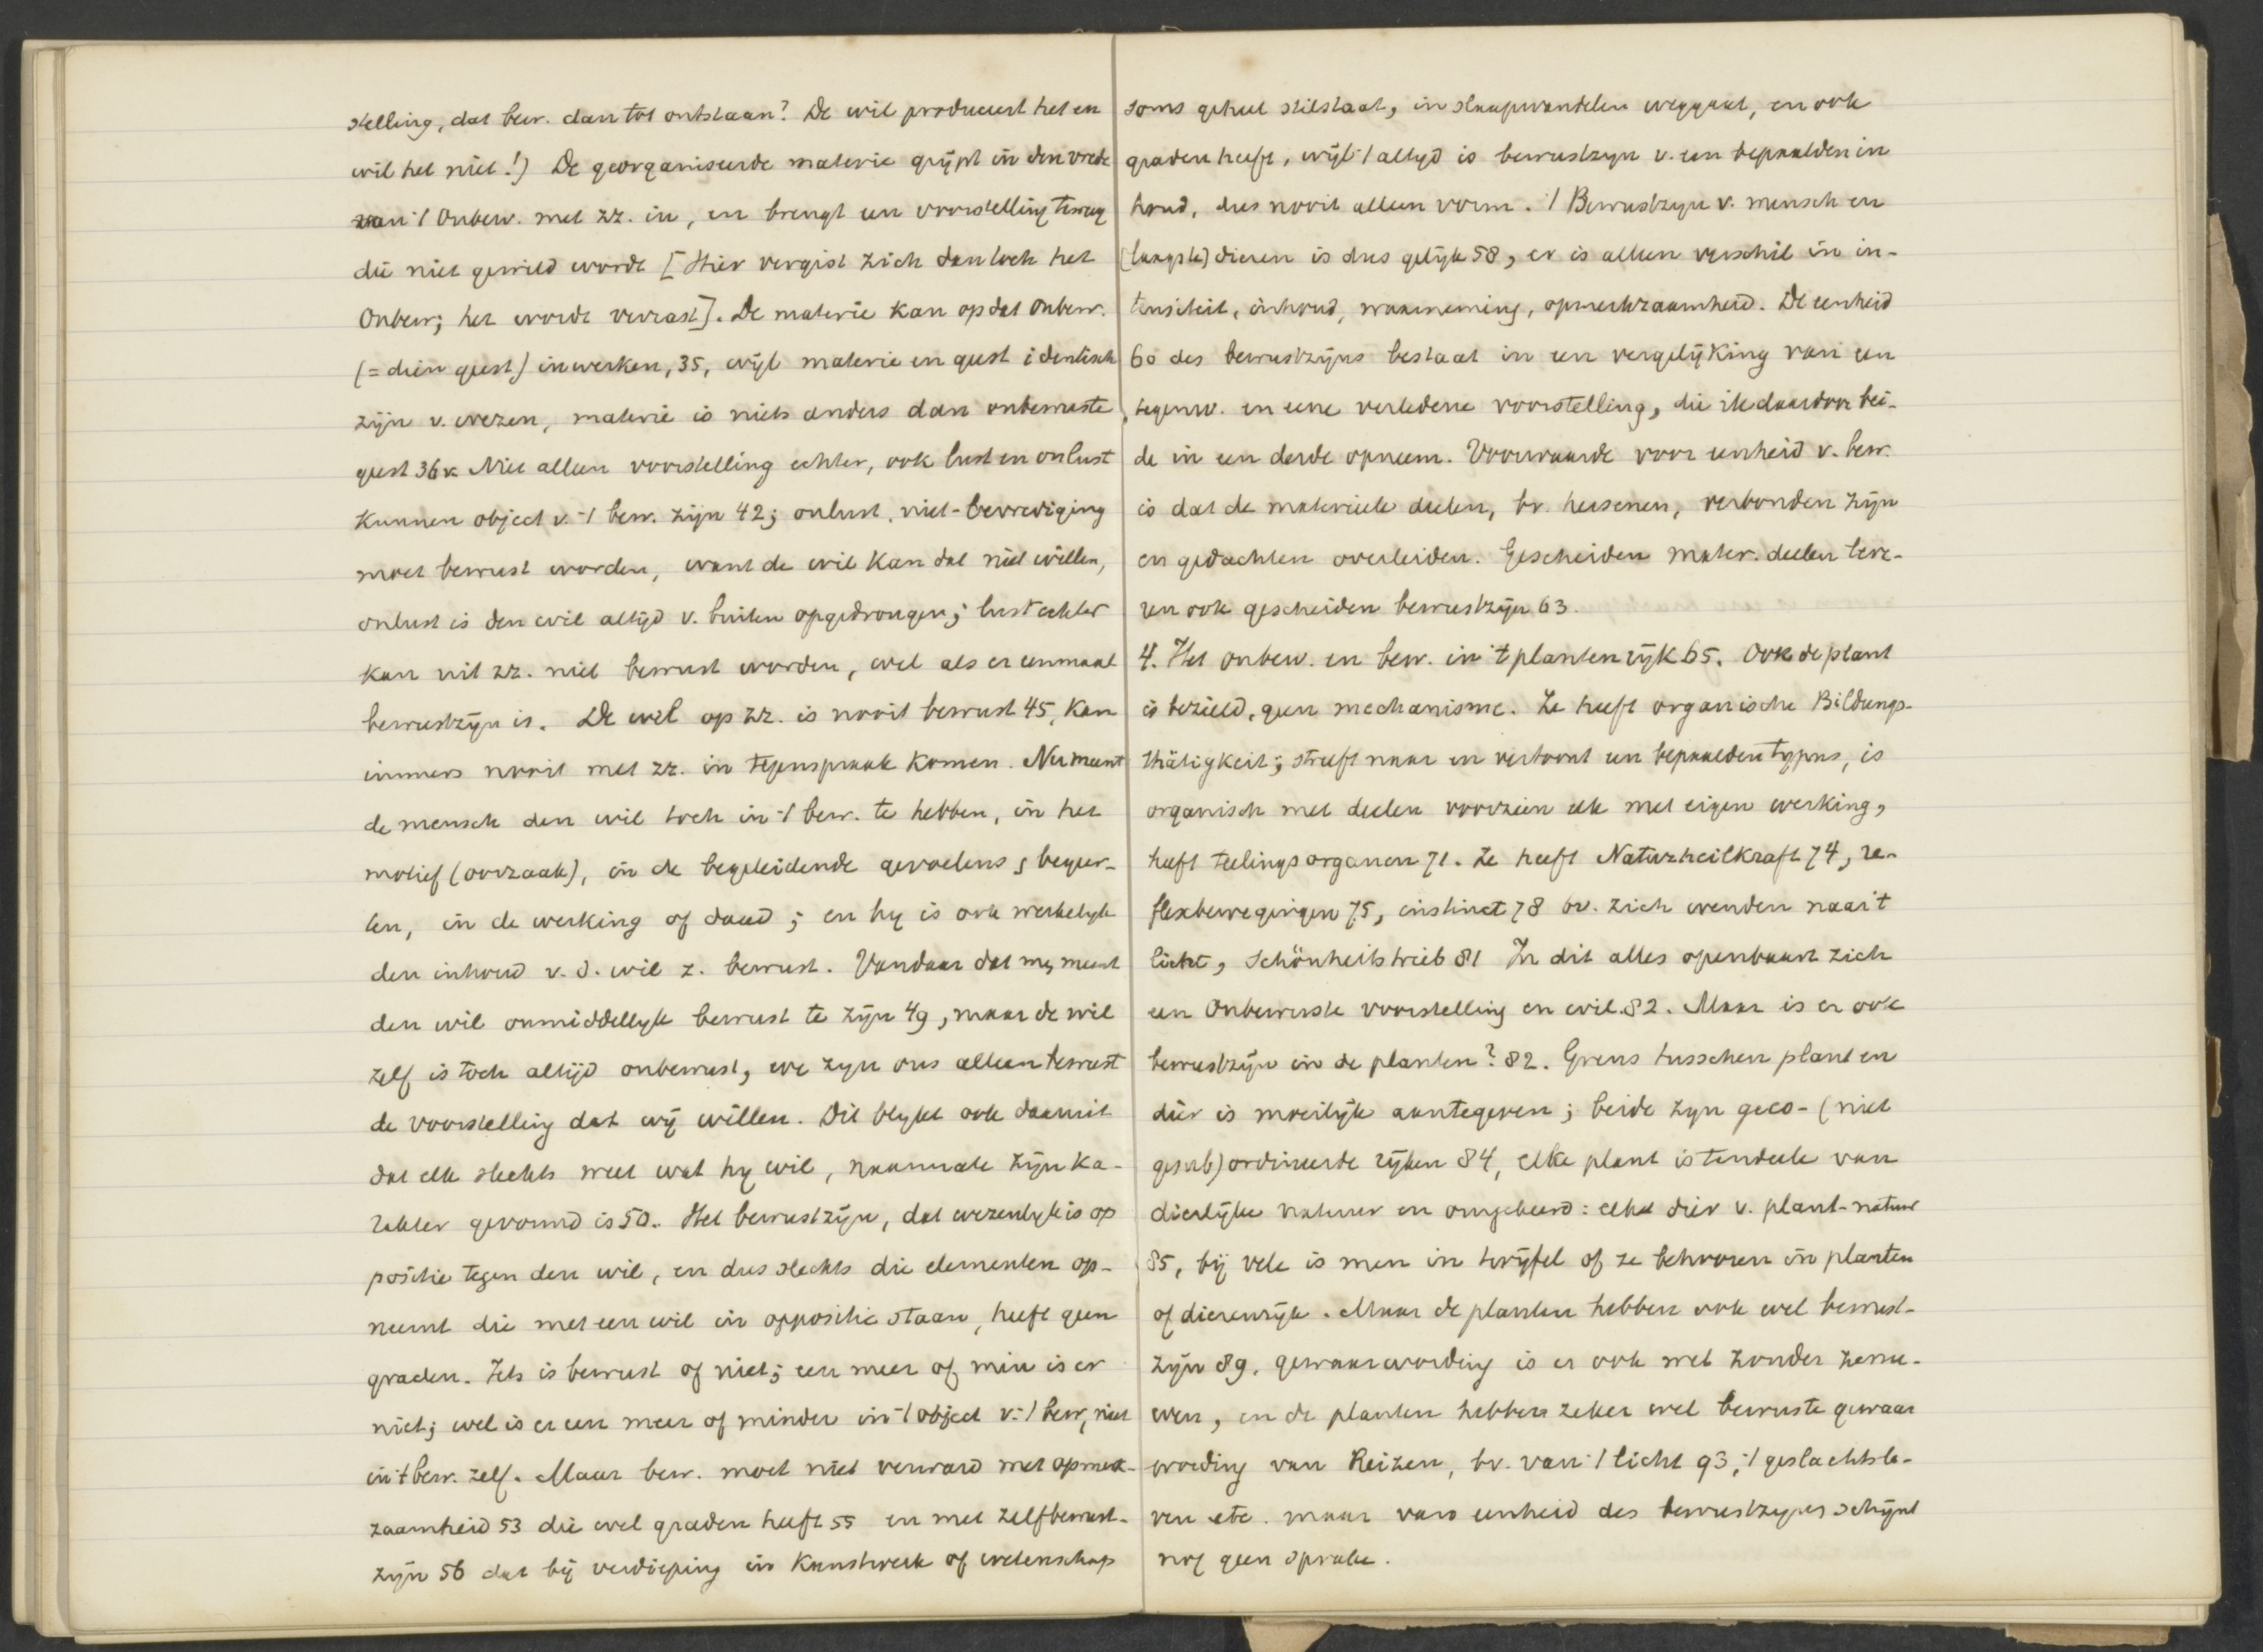 stelling, dat bew. dan tot ontstaan? De wil produceert het en
wil het niet!) De georganiseerde materie grijpt in den vrede
van 't Onbew. met zz. in, en brengt een voorstelling teweeg
die niet gewild wordt [Hier vergist zich dan toch het
Onbew; het wordt verrast]. De materie kan op dat Onbew.
(= dien geest) inwerken, 35, wijl materie en geest identisch
zijn v. wezen, materie is niets anders dan onbewuste
geest 36v. Niet alleen voorstelling echter, ook lust en onlust
kunnen object v. 't bew. zijn 42; onlust, niet-bevrediging
moet bewust worden, want de wil kan dat niet willen,
onlust is den wil altijd v. buiten opgedrongen; lust echter
kan uit zz. niet bewust worden, wel als er eenmaal
bewustzijn is. De wil op zz. is nooit bewust 45, kan
immers nooit met zz. in tegenspraak komen. Nu meent
de mensch den wil toch in 't bew. te hebben, in het
motief (oorzaak), in de begeleidende gevoelens, begeer-
ten, in de werking of daad; en hy is ook werkelyk
den inhoud v. d. wil z. bewust. Vandaar dat my meent
den wil onmiddellyk bewust te zijn 49, maar de wil
zelf is toch altijd onbewust, we zyn ons alleen bewust
de voorstelling dat wij willen. Dit blykt ook daaruit
dat elk slechts weet wat hy wil, naarmate zijn ka-
rakter gevormd is 50. Het bewustzijn, dat wezenlyk is op
positie tegen den wil, en dus slechts die elementen op-
neemt die met een wil in oppositie staan, heeft geen
graden. Iets is bewust of niet; een meer of min is er
niet; wel is er een meer of minder in 't object v. 't bew, niet
in 't bew. zelf. Maar bew. moet niet verward met opmerk-
zaamheid 53 die wel graden heeft 55 en met zelfbewust-
zijn 56 dat bij verdieping in kunstwerk of wetenschap
soms geheel stilstaat, in slaapwandelen weggaat, en ook
graden heeft, wijl 't altyd is bewustzyn v. een bepaalden in
houd, dus nooit alleen vorm. 't Bewustzyn v. mensch en
(laagste) dieren is dus gelijk 58, er is alleen verschil in in-
tensiteit, inhoud, waarneming, opmerkzaamheid. De eenheid
60 des bewustzijns bestaat in een vergelijking van een
tegenw. en eene verledene voorstelling, die ik daardoor bei-
de in een derde opneem. Voorwaarde voor eenheid v. bew.
is dat de materieele deelen, bv. hersenen, verbonden zijn
en gedachten overleiden. Gescheiden mater. deelen leve-
ren ook gescheiden bewustzijn 63.
4. Het onbew. en bew. in 't plantenrijk 65. Ook de plant
is bezield, geen mechanisme. Ze heeft organische Bildungs-
thätigkeit; streeft naar en vertoont een bepaalden typus, is
organisch met deelen voorzien elk met eigen werking,
heeft teelingsorganen 71. Ze heeft Naturheilkraft 74, re-
flexbewegingen 75, instinct 78 bv. zich wenden naar 't
licht, Schönheitstrieb 81 In dit alles openbaart zich
een Onbewuste voorstelling en wil. 82. Maar is er ook
bewustzijn in de planten? 82. Grens tusschen plant en
dier is moeilijk aantegeven; beide zyn geco- (niet
gesub)ordineerde rijken 84, elke plant is tendeele van
dierlijke natuur en omgekeerd: elke dier v. plant-natuur
85, bij vele is men in twijfel of ze behooren in planten
of dierenrijk. Maar de planten hebben ook wel bewust-
zijn 89, gewaarwording is er ook wel zonder zenu-
wen, en de planten hebben zeker wel bewuste gewaar
wording van Reizen, bv. van 't licht 93, 't geslachtsle-
ven etc. maar van eenheid des bewustzyns schijnt
nog geen sprake.